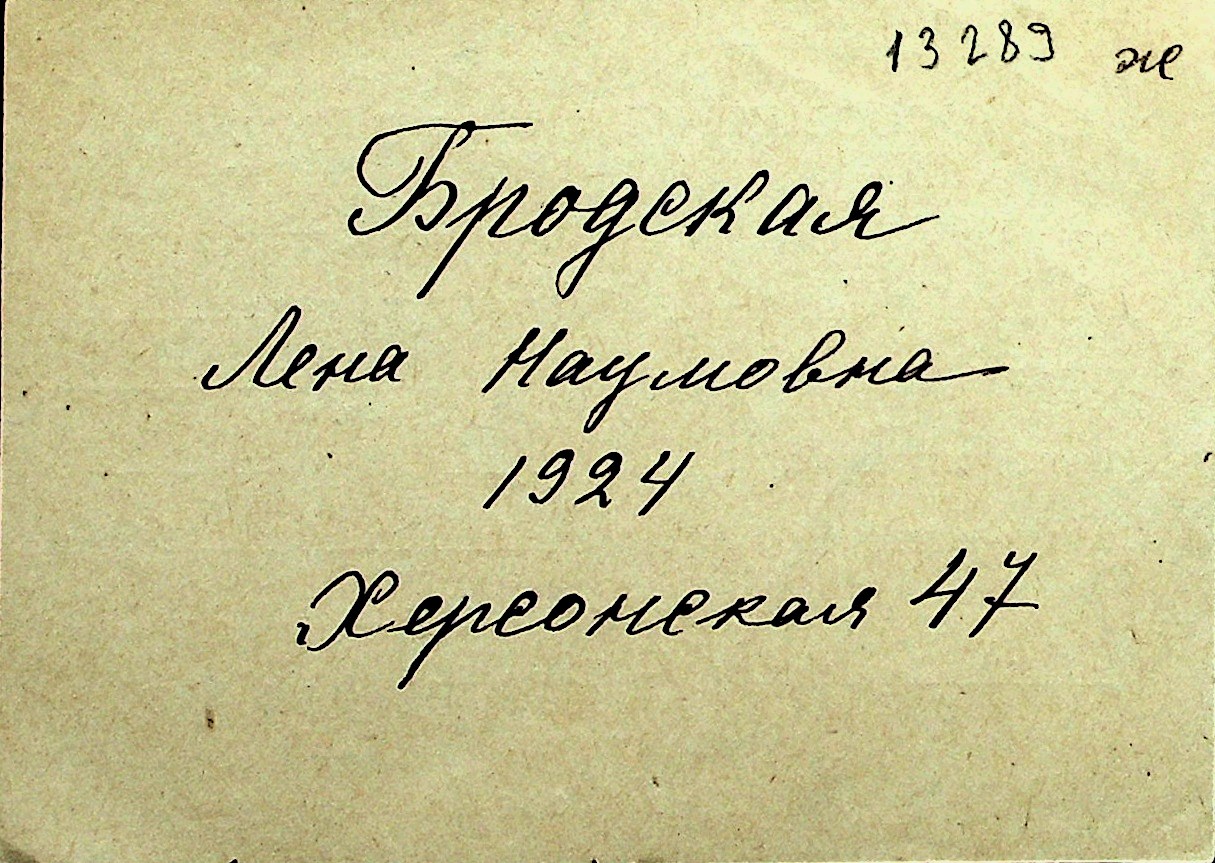 13289 же
Бродская
Лена Наумовна
1924
Херсонская 47